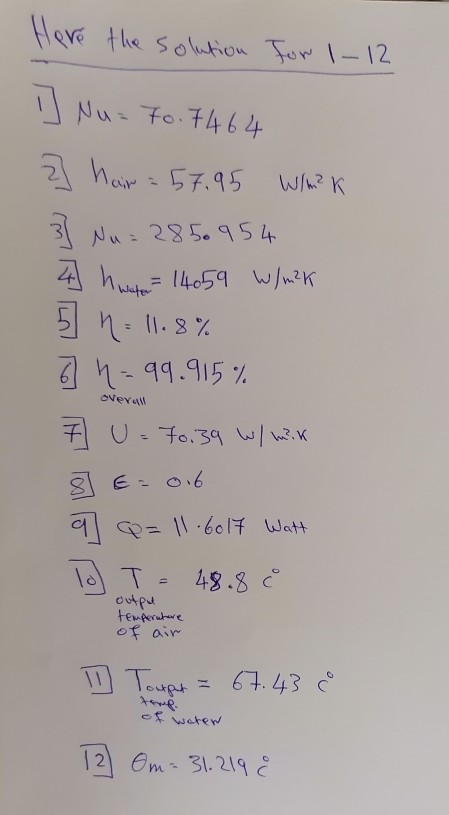 Here the solution For 1-12
1] Nu = 70.7464
2] hair = 57.95 W/m² K
3] Nu = 285.954
4] hwater = 14059 W/m²K
5] η = 11.8 %
6] η = 99.915 %
overall
7] U = 70.39 W/m².K
8] ϵ = 0.6
9] Q = 11.6017 Watt
10] T = 48.8 c°
output
temperature
of air
11] Toutput = 67.43 c°
temp.
of water
12] θm = 31.219 c°